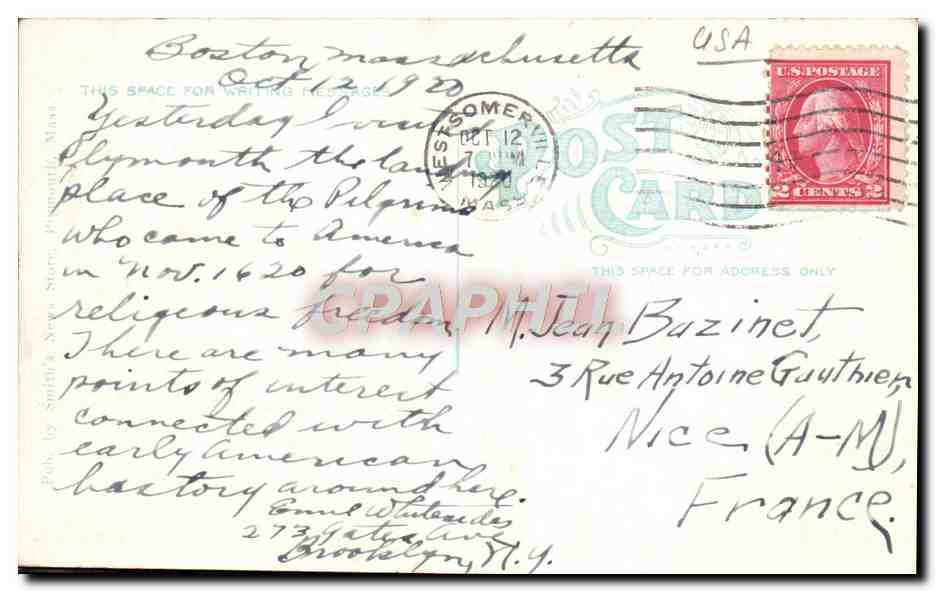 Boston Massachusetts
Oct 12 1920
USA
THIS SPACE FOR WRITING MESSAGES
Yesterday I visit
Plymouth the landing
place of the Pilgrims
who came to America
in Nov. 1620 for
religious freedom.
There are many
points of interest
connected with
early American
hastory around here.
Whitesides
273 Gates Ave
Brooklyn, N.Y.
WEST SOMERVILLE
OCT 12
7 PM
1920
MASS
U.S. POSTAGE
2 CENTS 2
POST
CARD
THIS SPACE FOR ADDRESS ONLY
M. Jean Bazinet,
3 Rue Antoine Gauthier,
Nice (A-M),
France.
Pub. by Smith's News Store, Plymouth, Mass
CPAPHIL